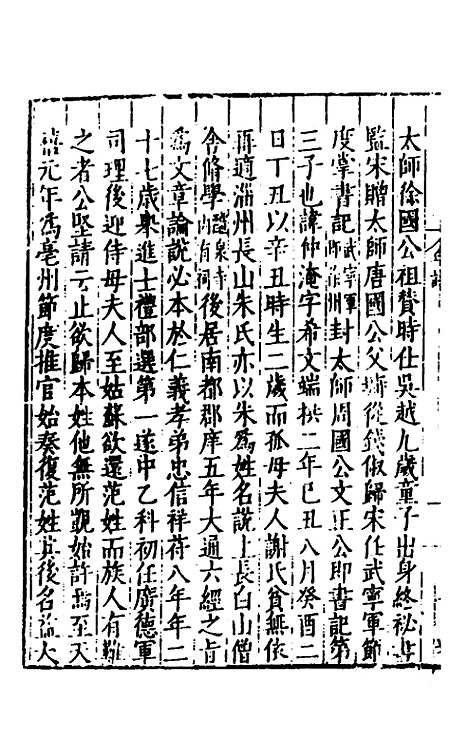 太師徐國公祖賛時仕吳越九歲童子出身終祕書
監宋贈太師唐國公父墉從錢俶歸宋任武寧軍節
度掌書記武寧軍即徐州封太師周國公文正公即書記第
三子也諱仲淹字希文端拱二年己丑八月癸酉二
日丁丑以辛丑時生二歲而孤母夫人謝氏貧無依
再適淄州長山朱氏亦以朱爲姓名說上長白山僧
舍脩學醴泉寺内有祠後居南都郡庠五年大通六經之旨
爲文章論說必本於仁義孝弟忠信祥符八年年二
十七歲舉進士禮部選第一遂中乙科初任廣德軍
司理後迎侍母夫人至姑蘇欲還范姓而族人有難
之者公堅請云止欲歸本姓他無所覬始許焉至天
禧元年爲亳州節度推官始奏復范姓其後名益大